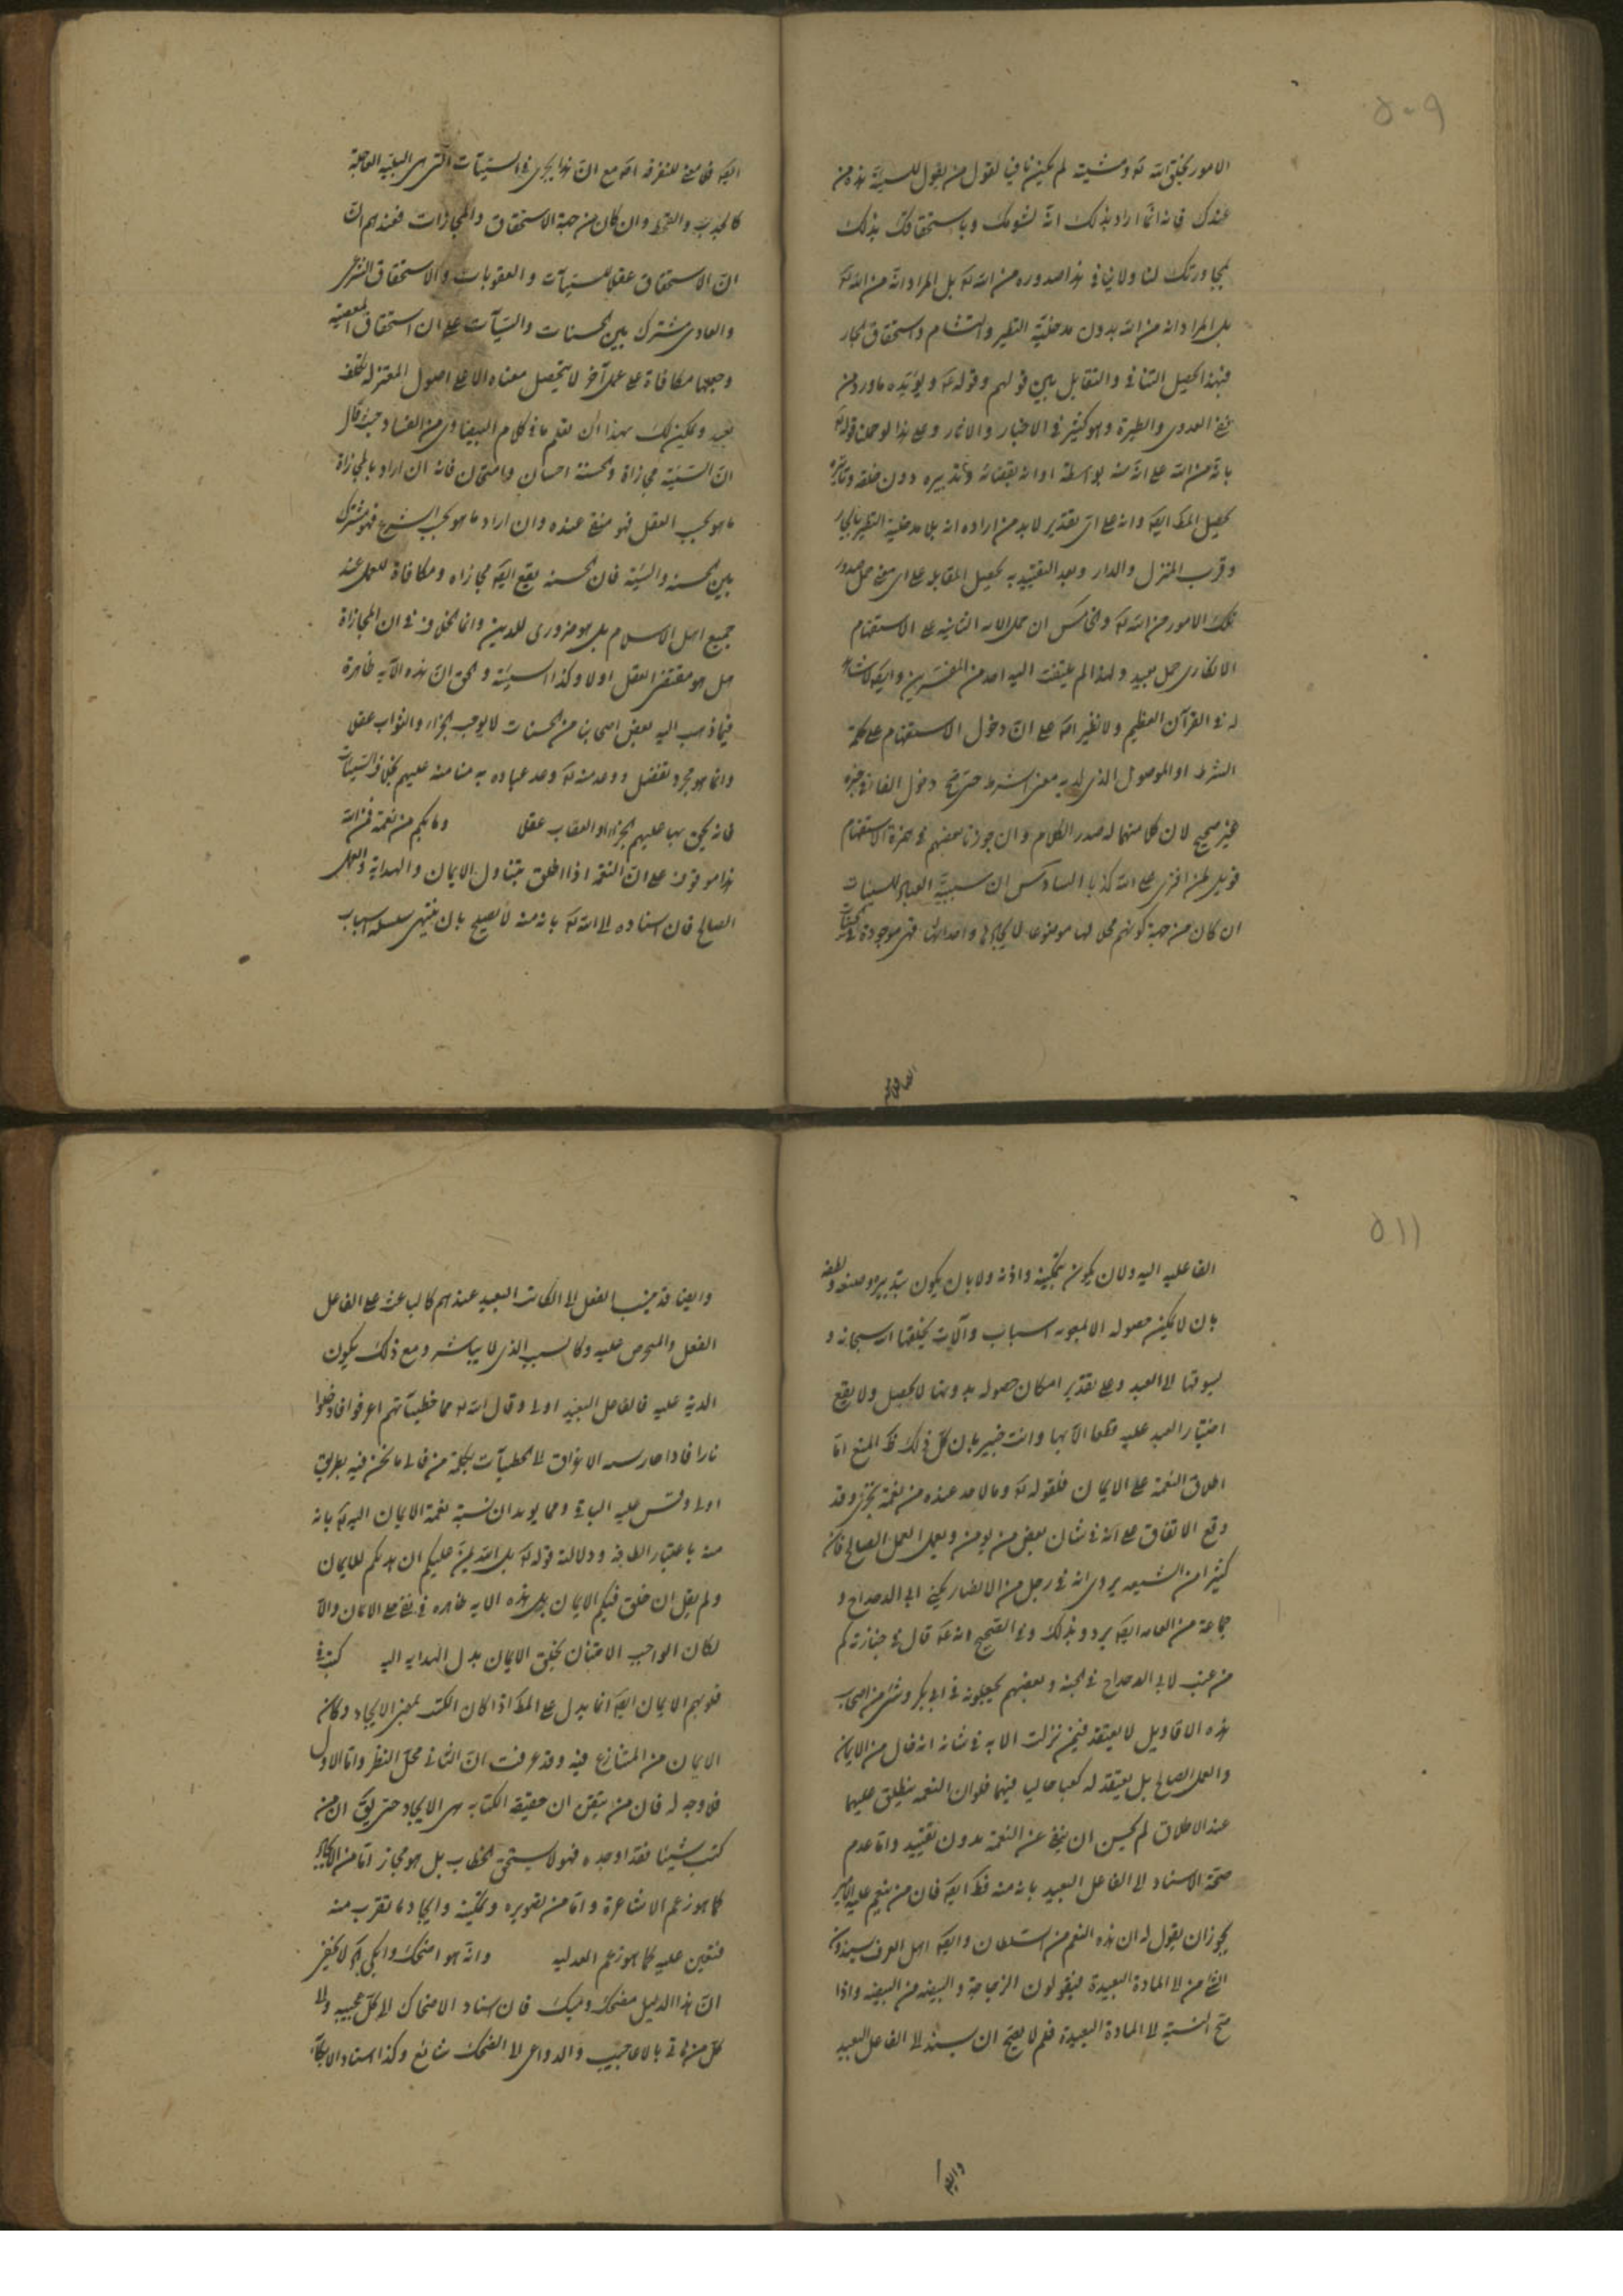 ٥٠٩
الامور بخلق الله تع ومشيته لم يكن نافيا لقول من يقول للسيئة هذه من
عندك فانه انما اراد بذلك انه لشومك وباستحقاقك بذلك
لمجاورتك لنا ولا ينافي هذا صدوره من الله تع بل المراد انه من الله تع
بل المراد انه من الله بدون مدخلية التطير والتشام واستحقاق الجار
فبهذا يحصل التنافي والتقابل بين قولهم وقوله تع ويؤيده ما ورد من
نفي العدوى والطيرة وهو كثير في الاخبار والاثار وعلى هذا لو حملنا قوله تع
بانه من الله على انه منه بواسطة او انه بقضائه وتدبيره دون خلقه وتاثيره
يحصل المط ايضا وانه على اي تقدير لا بد من اراده انه بلا مدخلية التطير بالجار
وقرب المنزل والدار وبعد التقييد به يحصل المقابلة على اي معنى حمل صدور
تلك الامور من الله تع والخامس ان حمل الاية الثانية على الاستفهام
الانكاري حمل بعيد ولهذا لم يلتفت اليه احد من المفسرين وايضا لا شاهد
له في القرآن العظيم ولا نظير اه على ان دخول الاستفهام على كلمة
الشرط او الموصول الذي اريد به معنى الشرط حتى صح دخول الفا في خبره
غير صحيح لان كلا منهما له صدر الكلام وان جوزنا بعضهم في همزة الاستفهام
فويل لمن افترى على الله كذبا السادس ان سببية العباد للسيئات
ان كان من جهة كونهم محلا لها موضوعا لايجادها واحداثها فهي موجودة في الحسنات
ايضا فما معنى للتفرقة اه مع ان هذا يجري في السيئات التي هي البلية العاجلة
كالجدب والقحط وان كان من جهة الاستحقاق والمجازات فعندهم ان
ان الاستحقاق عقلا للسيئات والعقوبات والاستحقاق الشرعي
والعادي مشترك بين الحسنات والسيآت على ان استحقاق المعصية
وجعلها مكافاة على عمل آخر لا يتحصل معناه الا على اصول المعتزلة بتكلف
بعيد ويمكن لك بهذا ان تعلم ما في كلام البيضاوي من الفساد حيث قال
ان السيئة مجازاة والحسنة احسان وامتحان فانه ان اراد بالمجازاة
ما هو بحسب العقل فهو منفي عنده وان اراد ما هو بحسب الشرع فهو مشترك
بين الحسنة والسيئة فان الحسنة يقع ايضا مجازاه ومكافاة للعمل عند
جميع اهل الاسلام بل هو ضروري للدين وانما الخلاف في ان المجازاة
هل هو مقتضى العقل اولا وكذا السيئة والحق ان هذه الآية ظاهرة
فيما ذهب اليه بعض اصحابنا من الحسنات لا يوجب الجزاء والثواب عقلا
وانما هو مجرد تفضل ووعد منه تع وعد عباده به منا منه عليهم بخلاف السيئات
فانه يحق بها عليهم الجزاء والعقاب عقلا وما بكم من نعمة فمن الله
هذا موقوف على ان النعمة اذا اطلق يتناول الايمان والهداية والعمل
الصالح فان اسناده الى الله تع بانه منه لا يصلح بان ينتهي سلسلة اسباب
٥١١
الفاعلية اليه ولان يكون بتمكينه واذنه ولا بان يكون بتدبيره وصنعه ولطفه
بان لا يمكن حصوله الا بمعونه اسباب وآلات يخلقها الله سبحانه و
يسوقها الى العبد وعلى تقدير امكان حصوله بدونها لا يحصل ولا يقع
اختيار العبد عليه قطعا الا بها وانت خبير بان كل ذلك في المنع اما
اطلاق النعمة على الايمان فلقوله تع وما لاحد عنده من نعمة تجزى وقد
وقع الاتفاق على انه في شان بعض من يومن ويعمل العمل الصالح فان
كثيرا من الشيعه يروي انه في رجل من الانصار يكنى ابي الدحداح و
جماعة من العامه ايضا يروون ذلك وفي الصحيح انه تع قال في جنازته كم
من عنب لابي الدحداح في الجنة وبعضهم يجعلونه في ابي بكر وشئ من اصحاب
هذه الاقاويل لا يعتقد فيمن نزلت الاية في شانه انه خال من الايمان
والعمل الصالح بل يعتقد له كعبا عاليا فيهما فلو ان النعمة ينطلق عليهما
عند الاطلاق لم يحسن ان ينفى عن النعمة بدون تقييد واما عدم
صحة الاسناد الى الفاعل البعيد بانه منه فظ ايضا فان من ينعم عليه الامير
يجوز ان يقول له ان هذه النعم من السلطان وايضا اهل العرف يسندون
الشئ من الى المادة البعيدة فيقولون الزجاجة والبيضه من البيضه واذا
صح النسبة الى المادة البعيدة فلم لا يصح ان يسند الى الفاعل البعيد
وايضا قد ينسب الفعل الى الكائن البعيد عندهم كالباعث على الفاعل
الفعل والمحرص عليه وكالسبب الذي لا يباشر ومع ذلك يكون
الدية عليه فالفاعل البعيد اولى وقال الله تع مما خطيئاتهم اغرقوا فادخلوا
نارا فاذا جاز نسبة الاغراق الى الخطيآت بكلمة من فالى ما نحن فيه بطريق
اولى وقس عليه الباقي ومما يويد ان نسبة نعمة الايمان اليه تع بانه
منه باعتبار الطافه ودلالته قوله تع بل الله يمن عليكم ان هديكم للايمان
ولم يقل ان خلق فيكم الايمان بل هذه الاية ظاهره في نفي خلق الايمان والا
لكان الواجب الامتنان بخلق الايمان بدل الهدايه اليه كتب في
قلوبهم الايمان ايضا انما يدل على المط اذا كان الكتب بمعنى الايجاد وكان
الايمان من المتنازع فيه وقد عرفت ان الثاني محل النظر واما الاول
فلا وجه له فان من يتقن ان حقيقه الكتابه هي الايجاد حتى يق ان من
كتب شيئا فقد اوجده فهو لا يستحق الخطاب بل هو مجاز اما من الايجاد
كما هو زعم الاشاعرة واما من تصويره وتمكينه وايجاد ما تقرب منه
فتعين عليه كما هو زعم العدليه وانه هو اضحك وابكى لا يخفى
ان هذا الدليل مضحك ومبك فان اسناد الاضحاك الى كل عجيبه والى
كل من اتى بالاعاجيب والدواعي الى الضحك شائع وكذا اسناد الابكاء